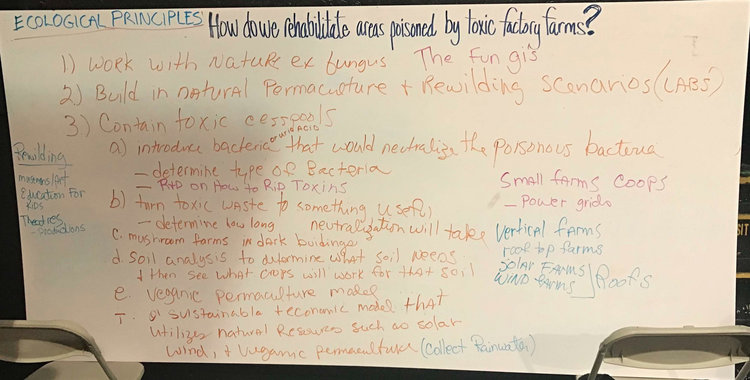 ECOLOGICAL PRINCIPLES
How do we rehabilitate areas poisoned by toxic factory farms?
1) Work with Nature ex fungus The fun gi's
2) Build in natural Permaculture + Rewilding Scenarios (LABS)
3) Contain toxic cesspools
a) introduce bacteria or uric ACID that would neutralize the poisonous bacteria
– determine type of Bacteria
– R+D on How to RID TOXINS
b) turn toxic waste to something useful
– determine how long neutralization will take
c. mushroom farms in dark buildings
d. Soil analysis to determine what soil needs
+ then see what crops will work for that soil
e. Veganic permaculture model
sustainable + economic model that
utilizes natural Resources such as solar
wind, + Veganic permaculture (Collect Rainwater)
Rewilding
museums/Art
Education For
Kids
Theatres
– productions
Small farms coops
– Power grids
Vertical farms
roof top farms
Solar Farms
Wind farms
Roofs